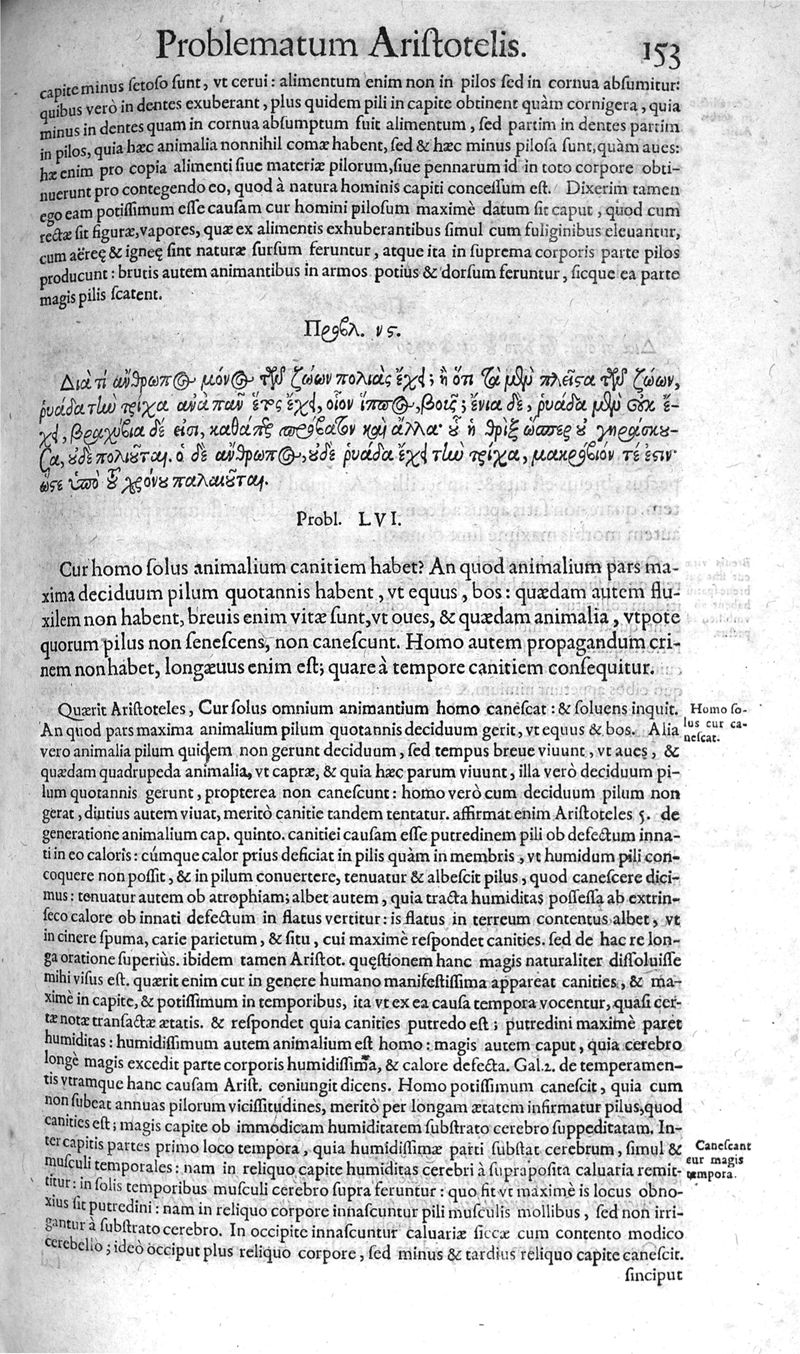 Problematum Ariſtotelis. 153
capite minus ſetoſo ſunt, vt cerui: alimentum enim non in pilos ſed in cornua abſumitur:
quibus verò in dentes exuberant, plus quidem pili in capite obtinent quàm cornigera, quia
minus in dentes quam in cornua abſumptum fuit alimentum, ſed partim in dentes partim
in pilos, quia hæc animalia nonnihil comæ habent, ſed & hæc minus piloſa ſunt, quàm aues:
hæ enim pro copia alimenti ſiue materiæ pilorum, ſiue pennarum id in toto corpore obti-
nuerunt pro contegendo eo, quod à natura hominis capiti conceſſum eſt. Dixerim tamen
ego eam potiſſimum eſſe cauſam cur homini piloſum maximè datum ſit caput, quod cum
rectæ ſit figuræ, vapores, quæ ex alimentis exhuberantibus ſimul cum fuliginibus eleuantur,
cum aëreę & igneę ſint naturæ ſurſum feruntur, atque ita in ſuprema corporis parte pilos
producunt: brutis autem animantibus in armos potius & dorſum feruntur, ſicque ea parte
magis pilis ſcatent.
Προβλ. νϛ.
Διὰ τί ἄνθρωπος μόνος τῶν ζώων πολιὰς ἔχει; ἢ ὅτι τὰ μὲν πλεῖστα τῶν ζώων,
ῥυάδα τὴν τρίχα ἀνὰ πᾶν ἔτος ἔχει, οἷον ἵππος, βοῦς; ἔνια δὲ, ῥυάδα μὲν οὐκ ἔ-
χει, βραχύβια δέ εἰσι, καθάπερ πρόβατον καὶ ἄλλα· ὧν ἡ θρὶξ ὥσπερ οὐ γηράσκου-
σα, οὐδὲ πολιοῦται. ὁ δὲ ἄνθρωπος, οὐδὲ ῥυάδα ἔχει τὴν τρίχα, μακρόβιόν τέ ἐστιν·
ὥστε ὑπὸ τοῦ χρόνου παλαιοῦται.
Probl. LVI.
Cur homo ſolus animalium canitiem habet? An quod animalium pars ma-
xima deciduum pilum quotannis habent, vt equus, bos: quædam autem flu-
xilem non habent, breuis enim vitæ ſunt, vt oues, & quædam animalia, vtpote
quorum pilus non ſeneſcens, non caneſcunt. Homo autem propagandum cri-
nem non habet, longæuus enim eſt; quare à tempore canitiem conſequitur.
Quærit Ariſtoteles, Cur ſolus omnium animantium homo caneſcat: & ſoluens inquit.
Homo ſo-
lus cur ca-
neſcat.
An quod pars maxima animalium pilum quotannis deciduum gerit, vt equus & bos. Alia
vero animalia pilum quidem non gerunt deciduum, ſed tempus breue viuunt, vt aues, &
quædam quadrupeda animalia, vt capræ, & quia hæc parum viuunt, illa verò deciduum pi-
lum quotannis gerunt, propterea non caneſcunt: homo verò cum deciduum pilum non
gerat, diutius autem viuat, meritò canitie tandem tentatur. affirmat enim Ariſtoteles 5. de
generatione animalium cap. quinto. canitiei cauſam eſſe putredinem pili ob defectum inna-
ti in eo caloris: cúmque calor prius deficiat in pilis quàm in membris, vt humidum pili con-
coquere non poſſit, & in pilum conuertere, tenuatur & albeſcit pilus, quod caneſcere dici-
mus: tenuatur autem ob atrophiam; albet autem, quia tracta humiditas poſſeſſa ab extrin-
ſeco calore ob innati defectum in flatus vertitur: is flatus in terreum contentus albet, vt
in cinere ſpuma, carie parietum, & ſitu, cui maximè reſpondet canities. ſed de hac re lon-
ga oratione ſuperiùs. ibidem tamen Ariſtot. quęſtionem hanc magis naturaliter diſſoluiſſe
mihi viſus eſt. quærit enim cur in genere humano manifeſtiſſima appareat canities, & ma-
ximè in capite, & potiſſimum in temporibus, ita vt ex ea cauſa tempora vocentur, quaſi cer-
tæ notæ tranſactæ ætatis. & reſpondet quia canities putredo eſt; putredini maximè paret
humiditas: humidiſſimum autem animalium eſt homo: magis autem caput, quia cerebro
longè magis excedit parte corporis humidiſſima, & calore defecta. Gal. 2. de temperamen-
tis vtramque hanc cauſam Ariſt. coniungit dicens. Homo potiſſimum caneſcit, quia cum
non ſubeat annuas pilorum viciſſitudines, meritò per longam ætatem infirmatur pilus, quod
canities eſt; magis capite ob immodicam humiditatem ſubſtrato cerebro ſuppeditatam. In-
ter capitis partes primo loco tempora, quia humidiſſimæ parti ſubſtat cerebrum, ſimul &
Caneſcant
cur magis
tempora.
muſculi temporales: nam in reliquo capite humiditas cerebri à ſuprapoſita caluaria remit-
titur: in ſolis temporibus muſculi cerebro ſupra feruntur: quo fit vt maximè is locus obno-
xius ſit putredini: nam in reliquo corpore innaſcuntur pili muſculis mollibus, ſed non irri-
gantur à ſubſtrato cerebro. In occipite innaſcuntur caluariæ ſiccæ cum contento modico
cerebello; ideò occiput plus reliquo corpore, ſed minus & tardius reliquo capite caneſcit.
ſinciput